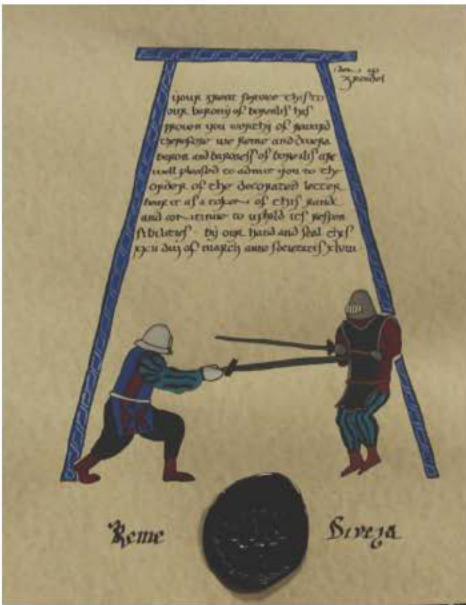 Grendel
your great service to
our barony of borealis has
proven you worthy of reward
therefore we Reme and Diveza
baron and baroness of borealis are
well pleased to admit you to the
order of the decorated letter
bear it as a token of this rank
and continue to uphold its respon
sibilities · by our hand and seal this
day of march anno societatis
Reme
Diveza